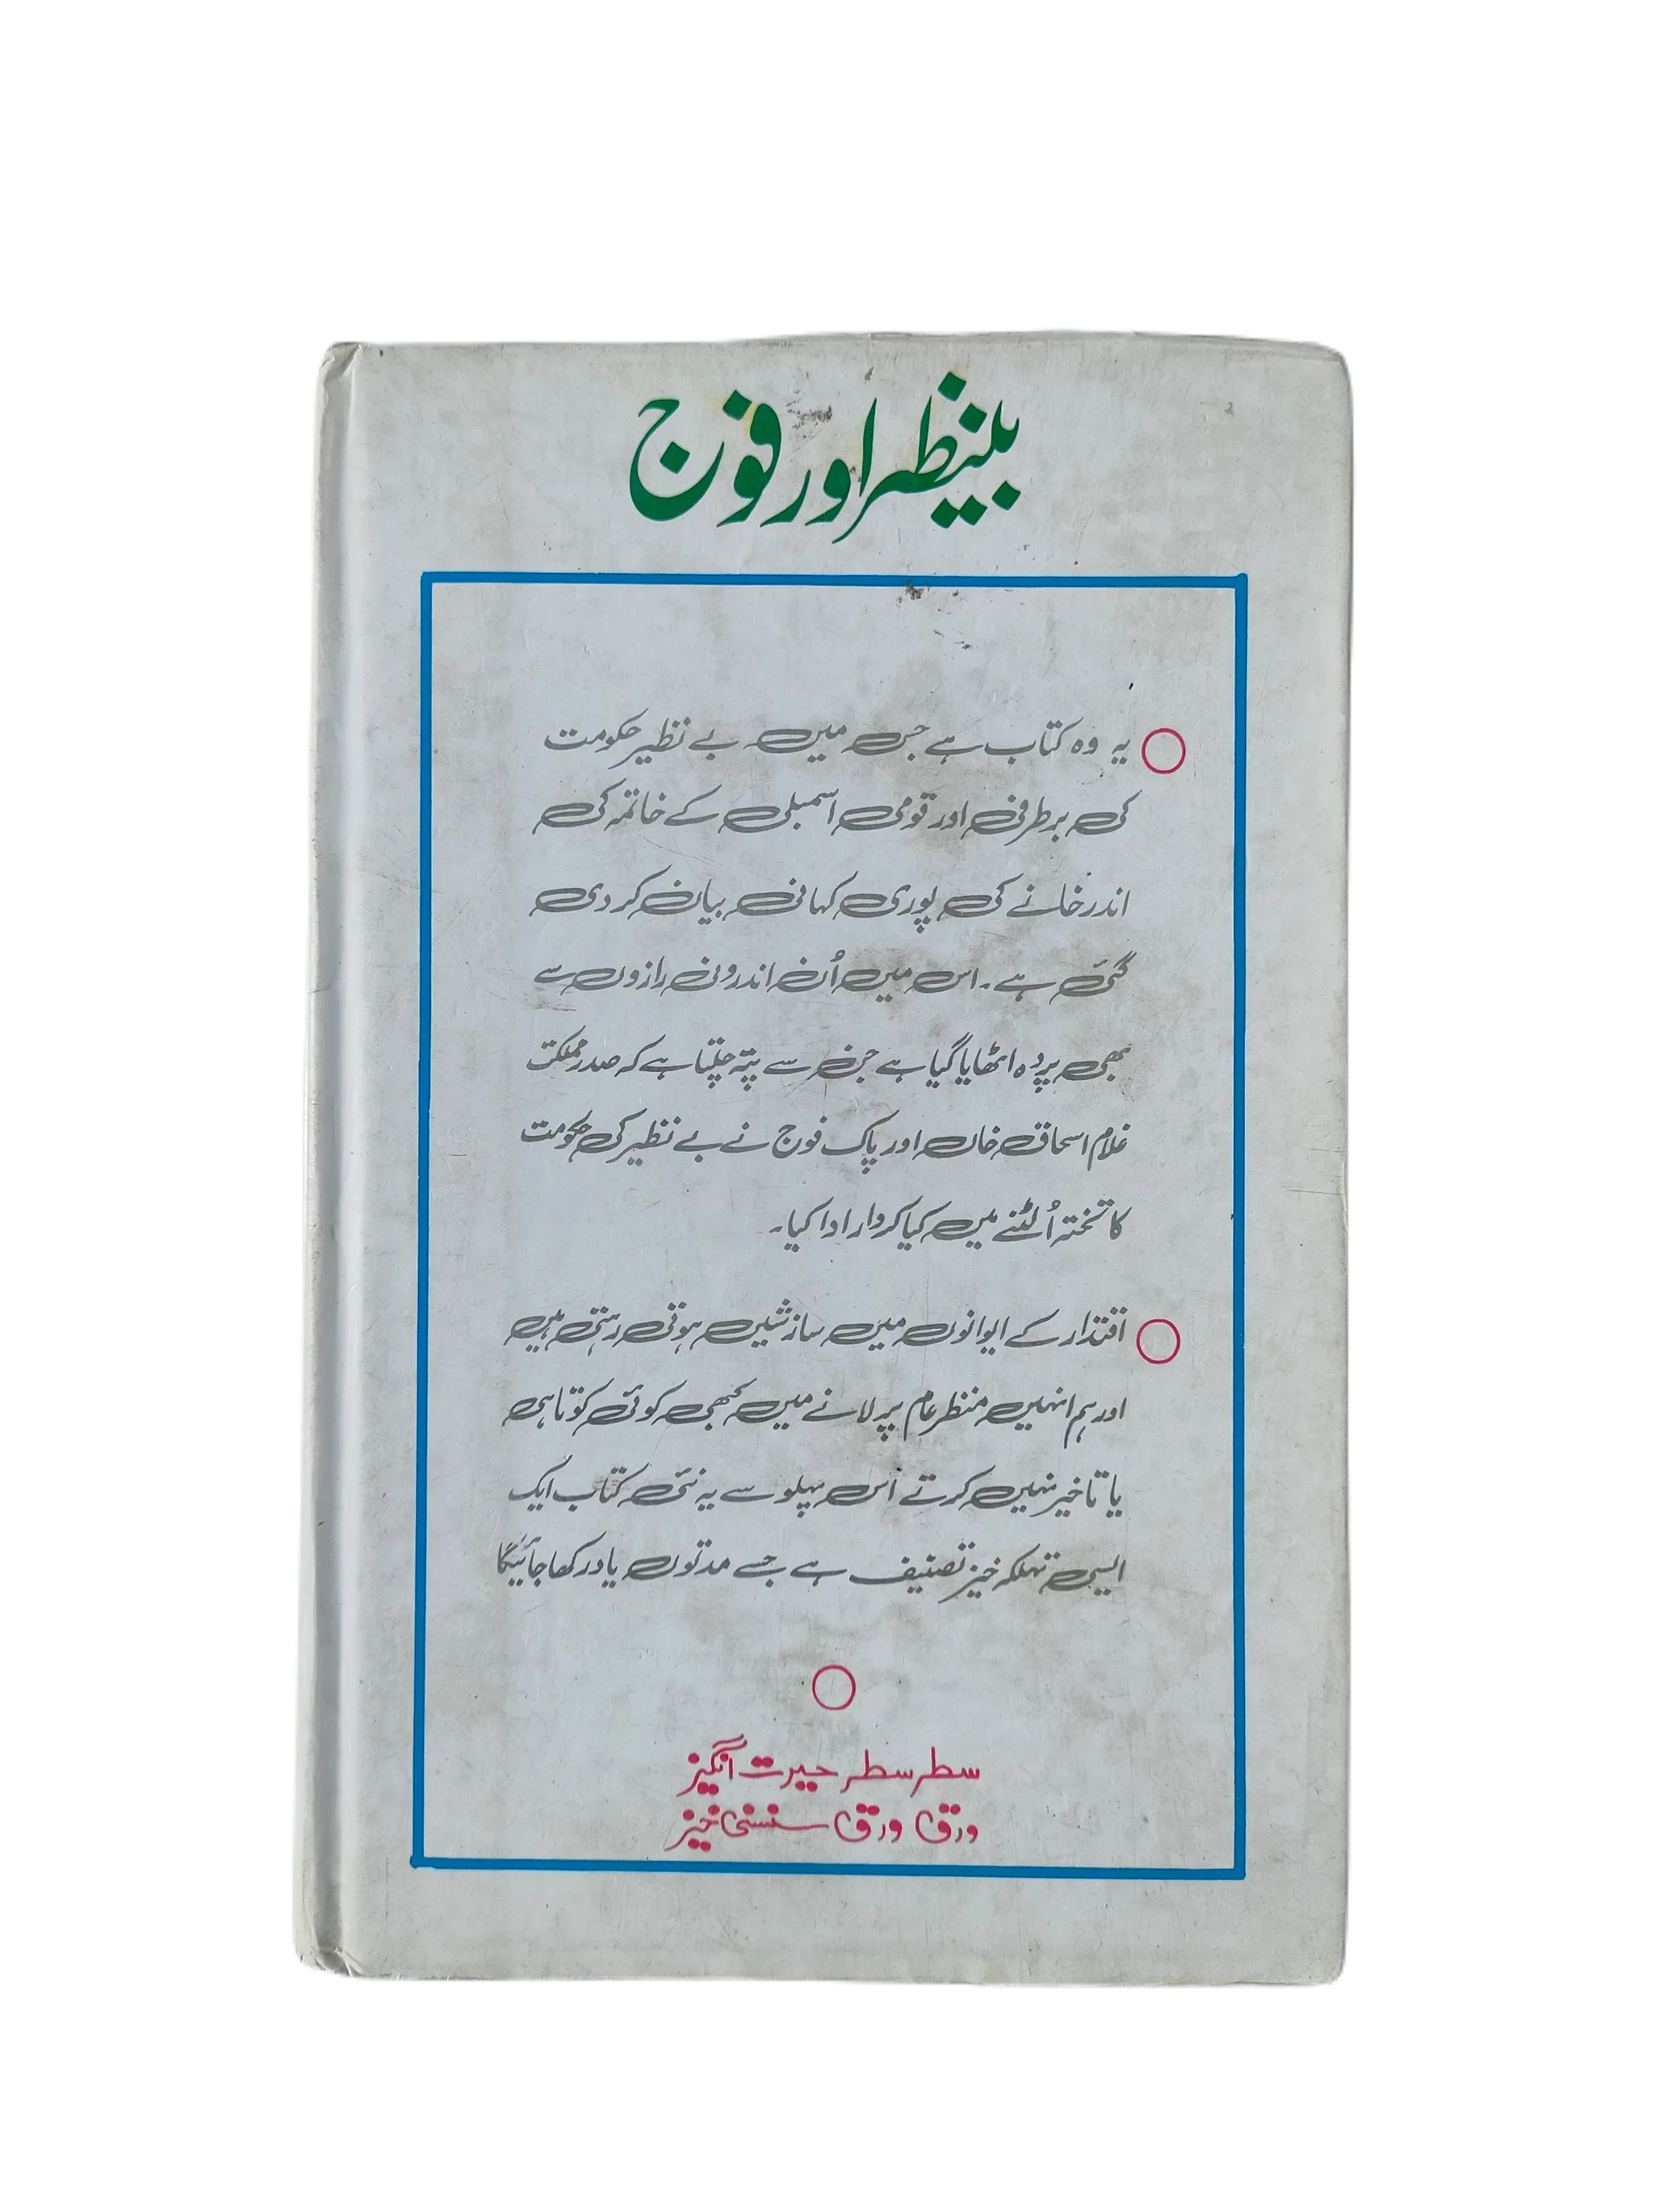 بینظیر اور فوج
یہ وہ کتاب ہے جس میں بے نظیر حکومت
کی برطرفی اور قومی اسمبلی کے خاتمہ کی
اندر خانے کی پوری کہانی بیان کر دی
گئی ہے۔ اس میں اُن اندرونی رازوں سے
بھی پردہ اٹھایا گیا ہے جن سے پتہ چلتا ہے کہ صدر مملکت
غلام اسحاق خان اور پاک فوج نے بے نظیر کی حکومت
کا تختہ اُلٹنے میں کیا کردار ادا کیا۔
اقتدار کے ایوانوں میں سازشیں ہوتی رہتی ہیں
اور ہم انہیں منظر عام پر لانے میں کبھی کوئی کوتاہی
یا تاخیر نہیں کرتے اس پہلو سے یہ نئی کتاب ایک
ایسی تہلکہ خیز تصنیف ہے جسے مدتوں یاد رکھا جائیگا
سطر سطر حیرت انگیز
ورق ورق سنسنی خیز